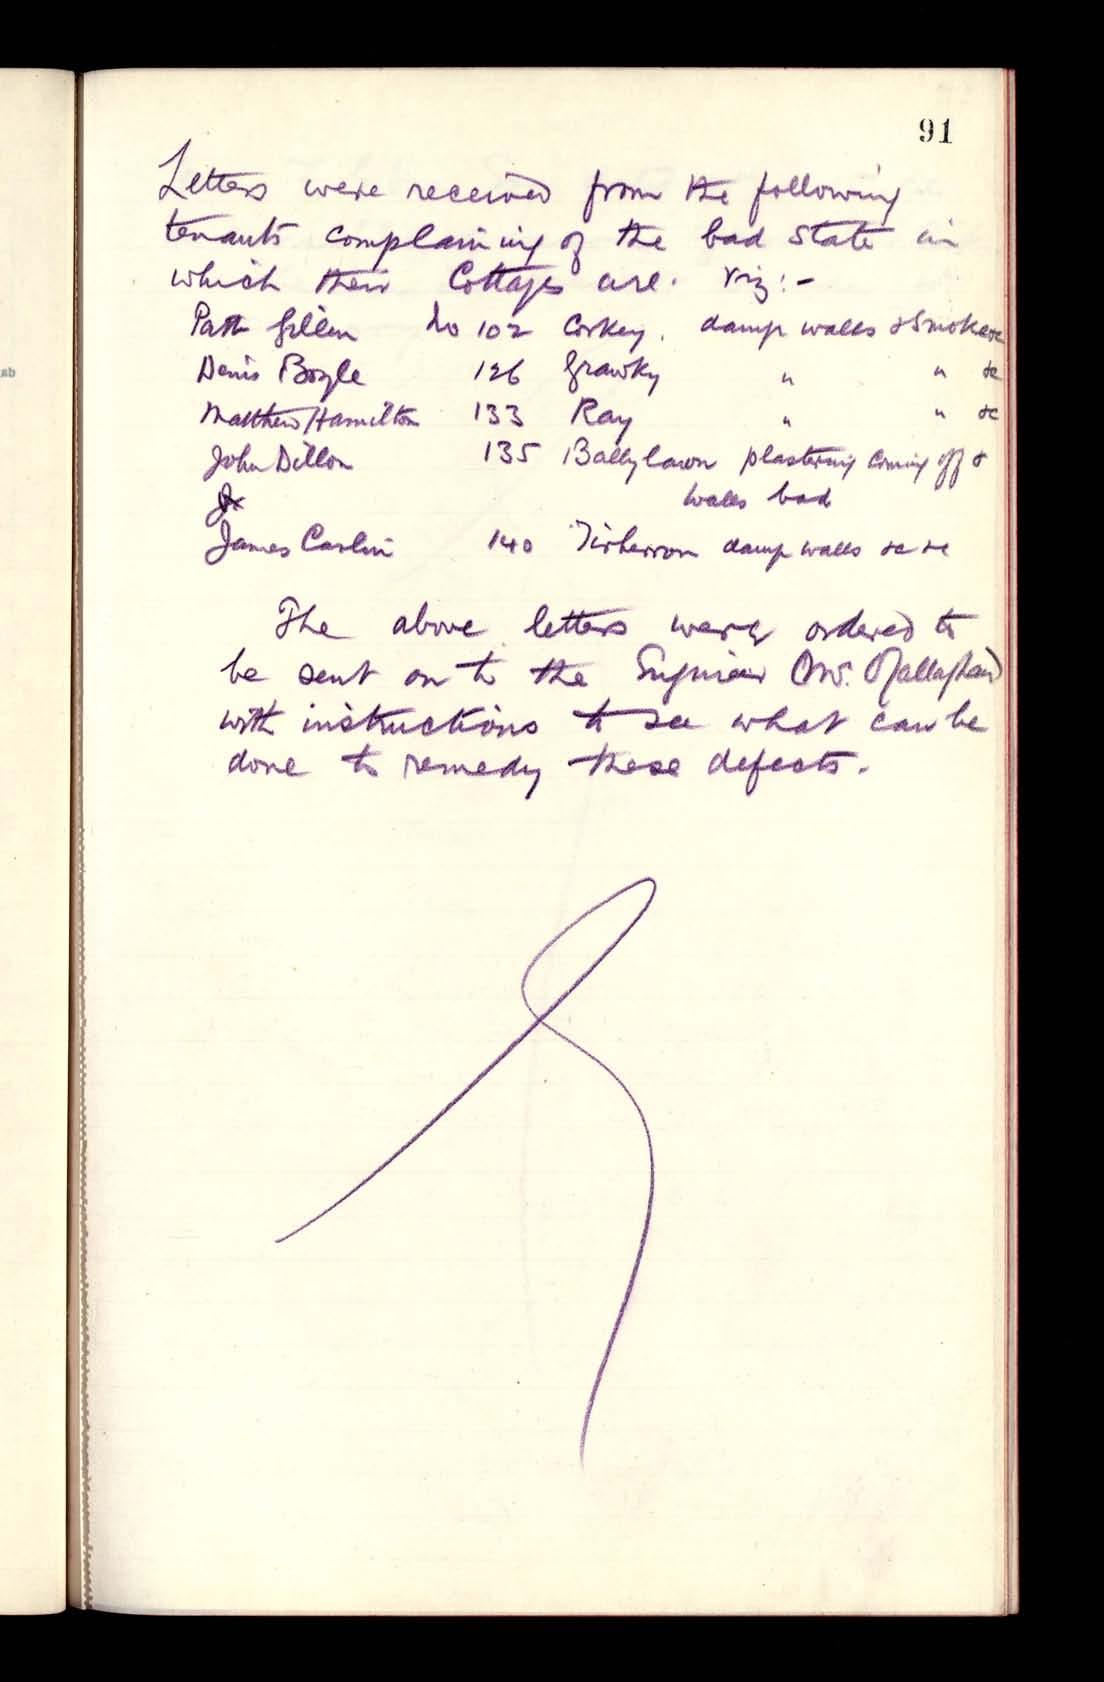 91
Letters were received from the following
tenants complaining of the bad state in
which their Cottages are. Viz:-
Patk Gillen No 102 Corkey. damp walls & Smoke &c
Denis Boyle 126 Grawky " " &c
Matthew Hamilton 133 Ray " " &c
John Dillon 135 Ballylawn plastering coming off &
walls bad
James Carlin 140 Tirherron damp walls &c &c
The above letters were ordered to
be sent on to the Engineer
with instructions to see what can be
done to remedy these defects.